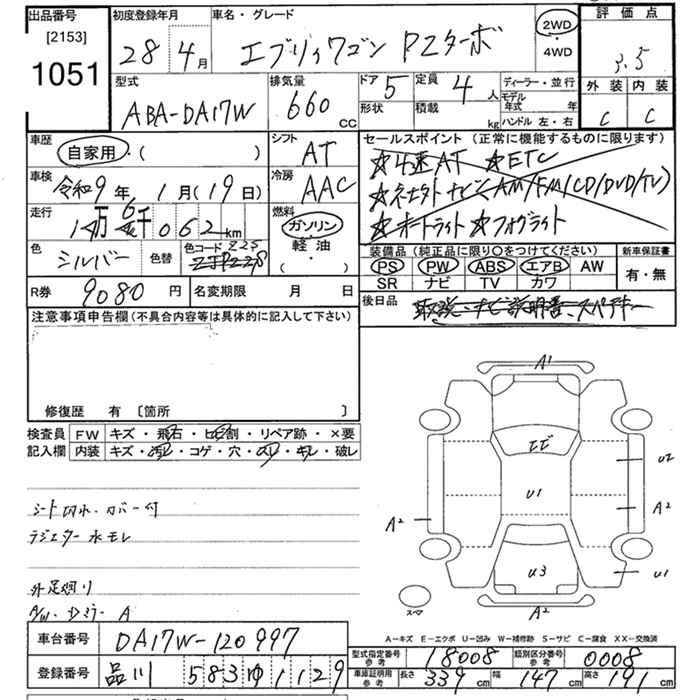 出品番号
[2153]
1051
初度登録年月
28年4月
車名・グレード
エブリィワゴン PZターボ
2WD
・
4WD
評価点
3.5
外装 内装
C C
型式
ABA-DA17W
排気量
660 cc
ドア 5
形状
定員 4 人
積載 kg
ディーラー・並行
モデル年式 年
ハンドル 左・右
車歴
自家用・( )
シフト
AT
車検
令和9年1月(19日)
冷房
AAC
走行
1万6千062km
燃料
ガソリン
・
軽油
( ・ )
色
シルバー
色替
色コード Z2S
R券 9080円
名変期限 月 日
セールスポイント (正常に機能するものに限ります)
☆4速AT ☆ETC
ナビ(AM/FM/CD/DVD/TV)
☆オートライト ☆フォグライト
装備品 (純正品に限り○をつけてください)
PS PW ABS エアB AW
SR ナビ TV カワ
新車保証書
有・無
後日品
取説・ナビ説明書・スペアキー
注意事項申告欄(不具合内容等は具体的に記入して下さい)
修復歴 有 〔箇所 〕
検査員
記入欄
FW キズ・飛石・ヒビ割・リペア跡・×要
内装 キズ・汚れ・コゲ・穴・スリ・キレ・破レ
カバー付
ラジエター水モレ
外足廻り
A/W・Dミラー A
A1
エビ
U1
U2
A2
A2
U3
U1
A2
スペア
A-キズ E-エクボ U-凹み W-補修跡 S-サビ C-腐食 XX-交換済
車台番号 DA17W-120997
登録番号 品川 583 ゆ 1129
型式指定番号 参考 18008
類別区分番号 参考 0008
車庫証明用 参考 長さ 339cm 幅 147cm 高さ 191cm